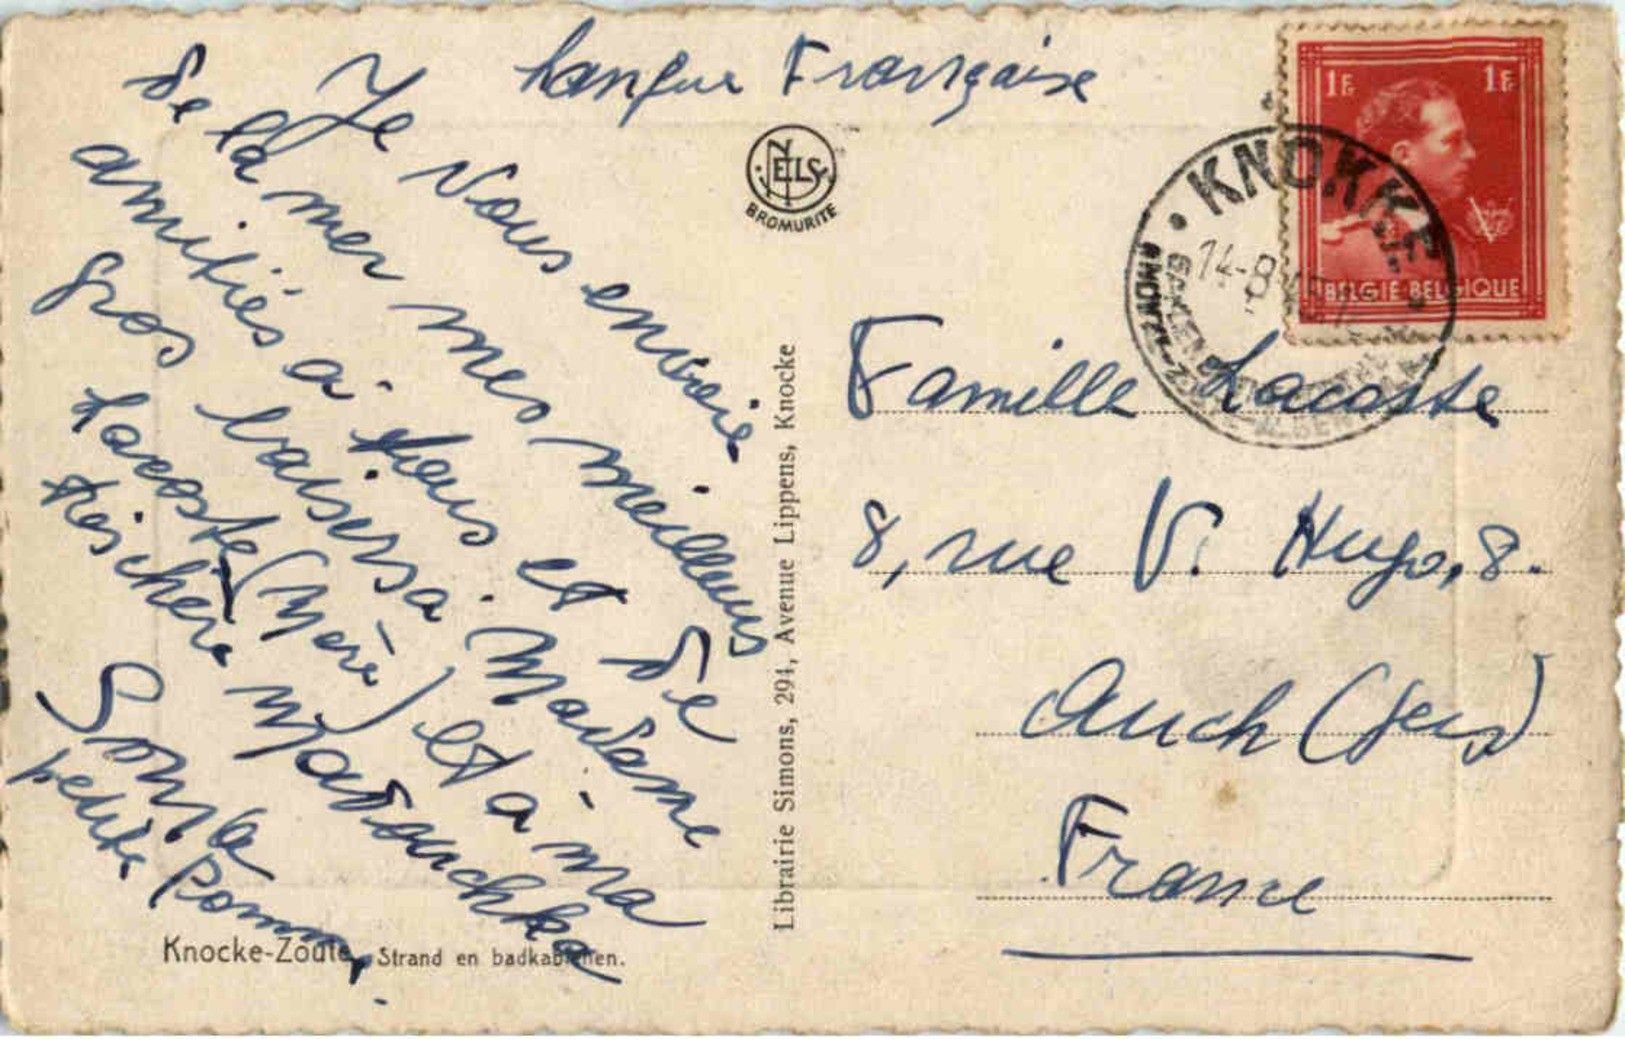 Langue Française
Je vous envoie
de la mer mes meilleurs
amitiés à tous et de
gros baisers à Madame
Lacoste (Mère) et à ma
très chère Madouchka
Sonia
petite Pomme.
NELS
BROMURITE
Librairie Simons, 294, Avenue Lippens, Knocke
Knocke-Zoute, Strand en badkabienen.
1F 1F
BELGIE BELGIQUE
KNOKKE
14-8
Famille Lacoste
8, rue V. Hugo, 8.
Auch (Gers)
France